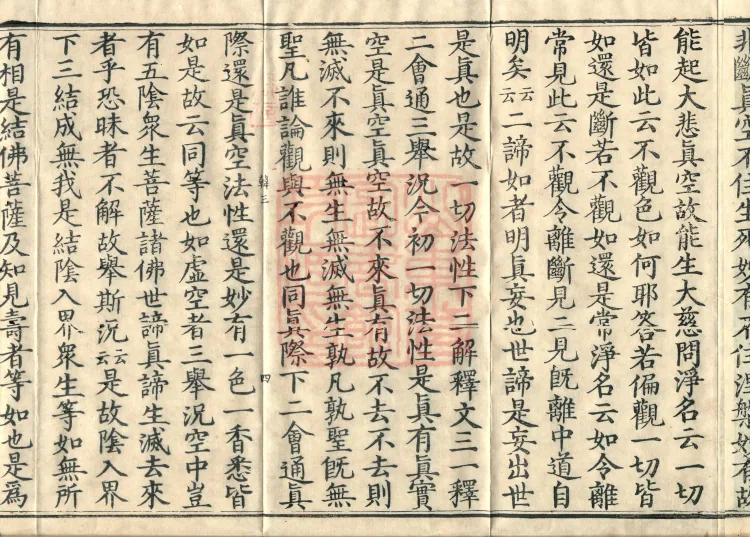 非斷眞空不住生死妙有不住涅槃妙有故
能起大悲眞空故能生大慈問淨名云一切
皆如此云不觀色如何耶答若偏觀一切皆
如還是斷若不觀如還是常淨名云如令離
常見此云不觀令離斷見二見旣離中道自
明矣云云二諦如者明眞妄也世諦是妄出世
是眞也是故一切法性下二解釋文三一釋
二會通三舉況今初一切法性是眞有眞實
空是眞空眞空故不來眞有故不去不去則
無滅不來則無生無滅無生孰凡孰聖旣無
聖凡誰論觀與不觀也同眞際下二會通眞
韓三 四
際還是眞空法性還是妙有一色一香悉皆
如是故云同等也如虛空者三舉況空中豈
有五陰衆生菩薩諸佛世諦眞諦生滅去來
者乎恐昧者不解故舉斯況云云是故陰入界
下三結成無我是結陰入界衆生等如無所
有相是結佛菩薩及知見壽者等如也是爲